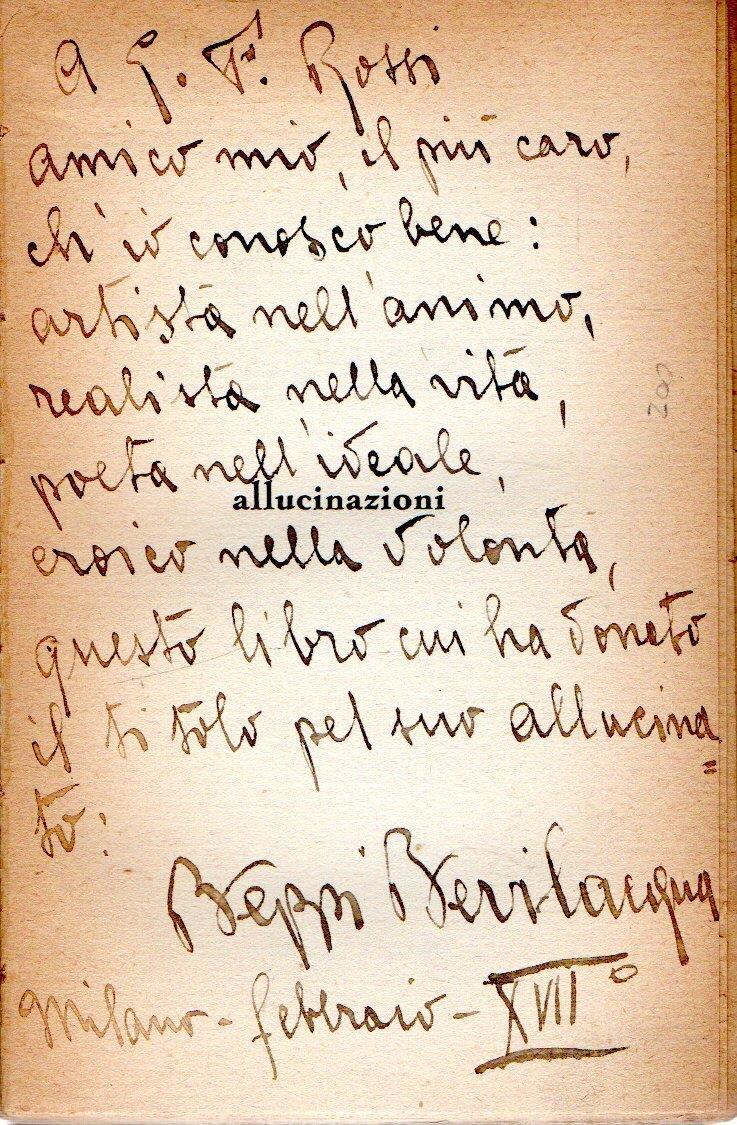 A G. F. Rossi
amico mio, il più caro,
ch'io conosco bene:
artista nell'animo,
realista nella vita,
poeta nell'ideale,
allucinazioni
eroico nella volontà,
questo libro cui ha donato
il titolo pel suo allucina=
to:
Beppi Bevilacqua
Milano - febbraio - XVII°
200